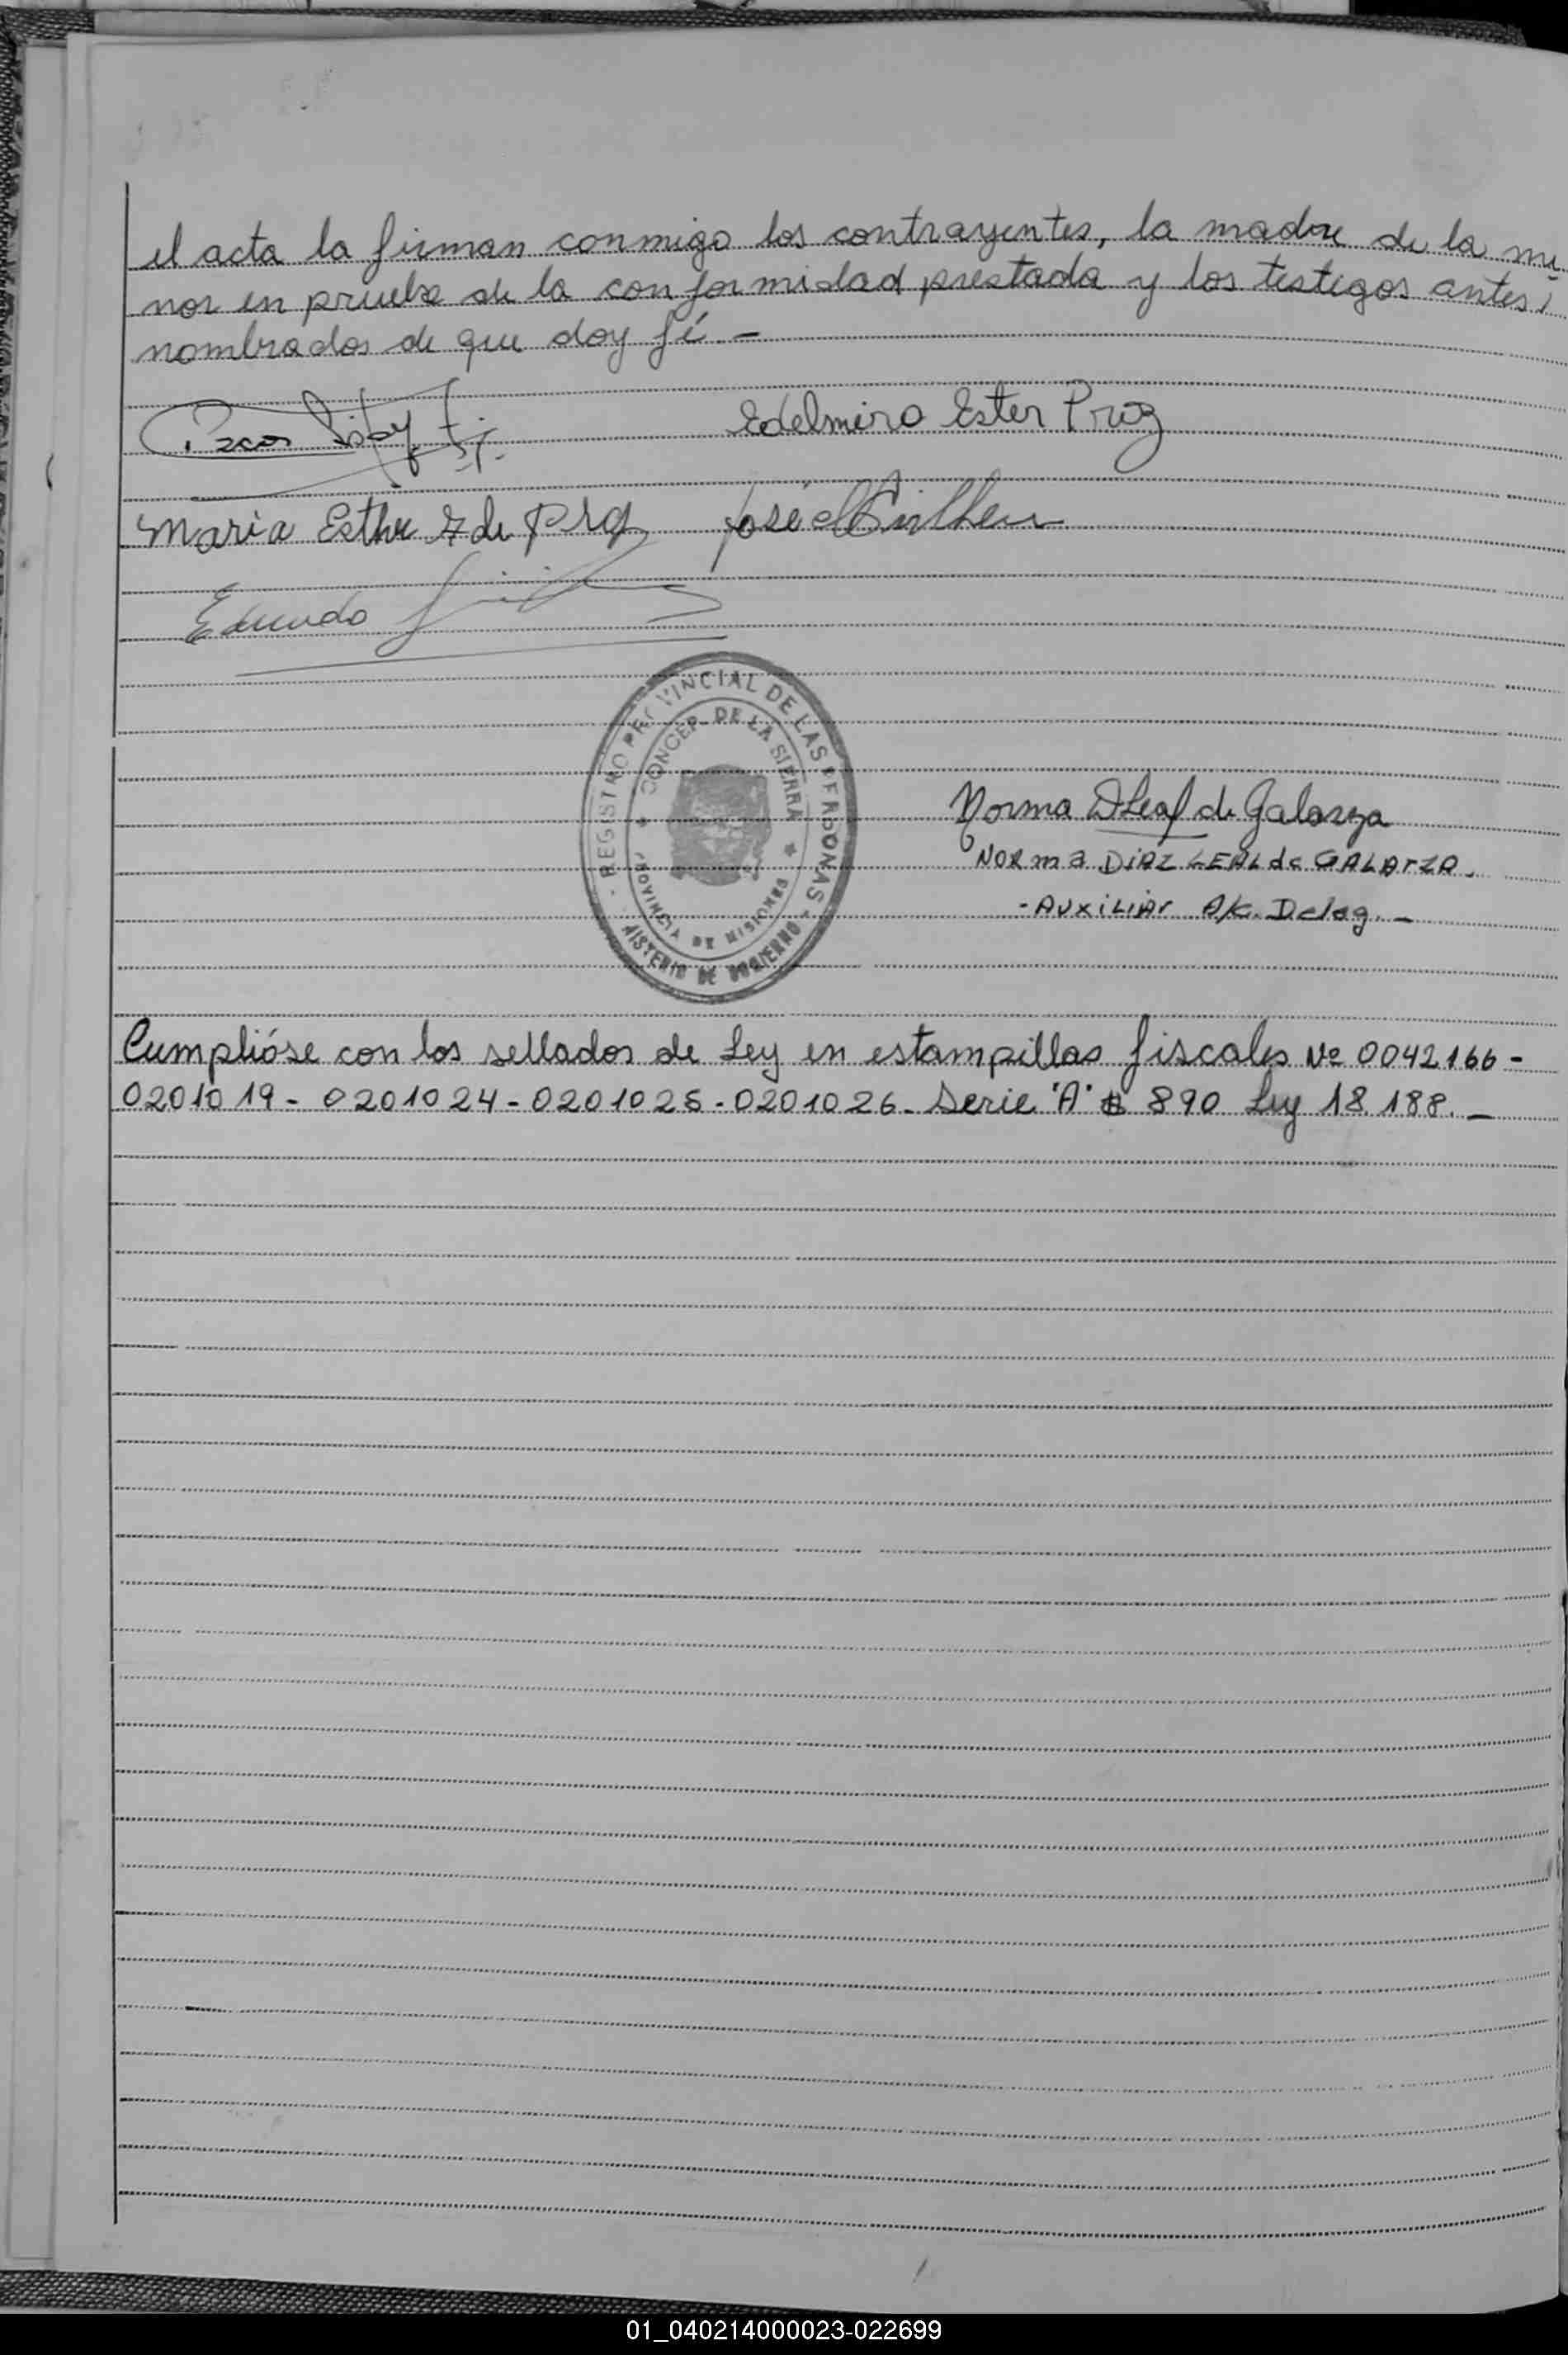 el acta la firman conmigo los contrayentes, la madre de la me
nor en prueba de la conformidad prestada y los testigos antes
nombrados de que doy fé.-
Edelmira Ester Proz
Maria Esther de
José
Eduardo
REGISTRO PROVINCIAL DE LAS PERSONAS
CONCEP. DE LA SIERRA
PROVINCIA DE MISIONES
MISTERIO DE GOBIERNO
Norma D Leal de Galarza
NORMA DIAZ LEAL de GALARZA.
- AUXILIAR A/C. Deleg. -
Cumplióse con los sellados de Ley en estampillas fiscales Nº 0042166-
0201019- 0201024-0201025-0201026- Serie "A" $ 890 Ley 18.188. -
01_040214000023-022699